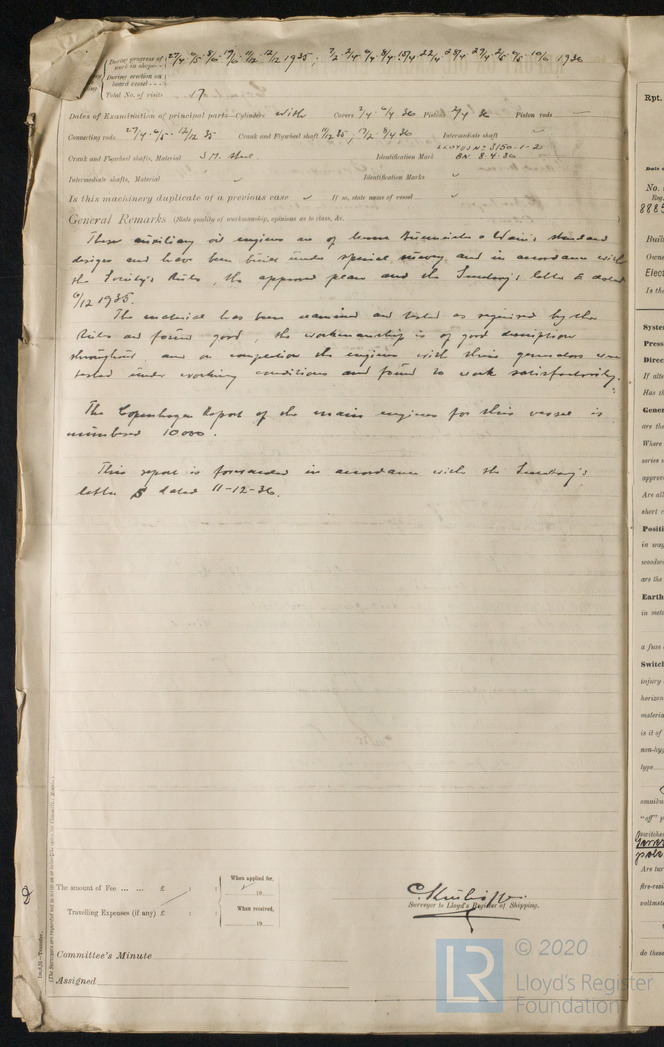 During progress of work in shops - -
During erection on board vessel - - -
Total No. of visits 17.
Dates of Examination of principal parts—Cylinders with Covers 2/4 6/4 36 Pistons 2/4 36 Piston rods —
Connecting rods 27/4 · 6/5 - 12/12 35 Crank and Flywheel shaft 11/12 35; 7/2 3/4 36 Intermediate shaft ✓
Crank and Flywheel shafts, Material S.M. steel. Identification Mark LLOYDS No 3150-1-2 BN 8.4.36
Intermediate shafts, Material ✓ Identification Marks ✓
Is this machinery duplicate of a previous case ✓ If so, state name of vessel ✓
General Remarks (State quality of workmanship, opinions as to class, &c.
These auxiliary oil engines are of Burmeister & Wain's standard
design and have been built under special survey and in accordance with
the Society's Rules, the approved plans and the Secretary's letter E dated
6/12 1935.
The material has been examined and tested as required by the
Rules and found good, the workmanship is of good description
throughout and on completion the engines with their generators were
tested under working conditions and found to work satisfactorily.
The Copenhagen Report of the main engines for this vessel is
numbered 10000.
This report is forwarded in accordance with the Secretary's
letter S dated 11-12-36.
The amount of Fee ... ... £ : :
When applied for,
19
Travelling Expenses (if any) £ : :
When received,
19
Surveyor to Lloyd's Register of Shipping.
Committee's Minute
Assigned
Rpt.
No.
Reg.
8885
Buil
Owne
Elect
Is the
Syste
Press
Direc
If alte
Has th
Gener
are the
Where
series
approv
Are all
short c
Positi
in way
woodw
are the
Earth
in meta
a fuse
Switc
injury
horizon
materia
is it of
non-hyg
type
omnibu
"off" p
switches
Are tur
fire-resi
voltmete
do these
© 2020
LR
Lloyd's Register
Foundation